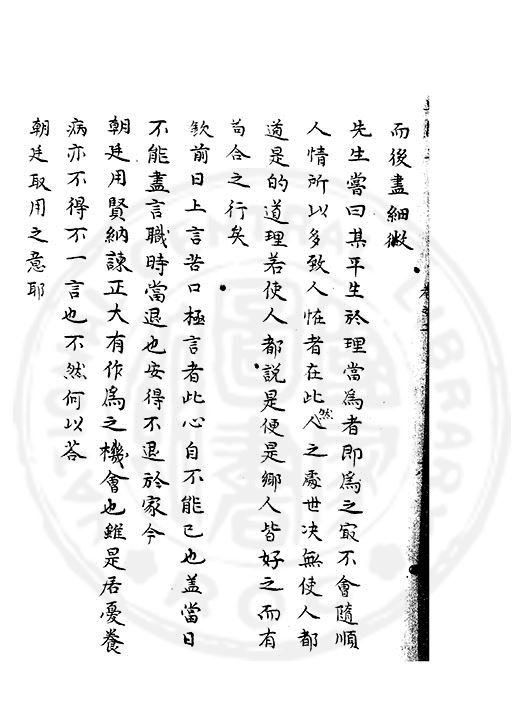 而後盡細微
先生嘗曰某平生於理當爲者即爲之寂不會隨順
人情所以多致人恠者在此然人之處世决無使人都
道是的道理若使人都說是便是鄉人皆好之而有
苟合之行矣
欽前日上言苦口極言者此心自不能已也盖當日
不能盡言職時當退也安得不退於家今
朝廷用賢納諫正大有作爲之機會也雖是居憂養
病亦不得不一言也不然何以荅
朝廷取用之意耶